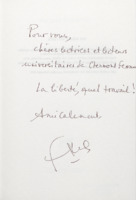 Pour vous,
chères lectrices et lecteurs
universitaires de Clermont Ferrand
La liberté, quel travail !
Amicalement